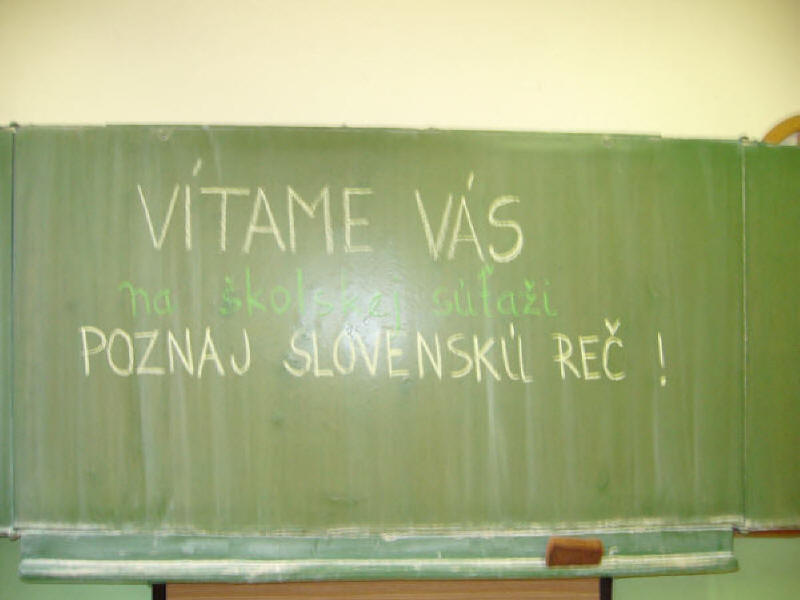 VÍTAME VÁS
na školskej súťaži
POZNAJ SLOVENSKÚ REČ !